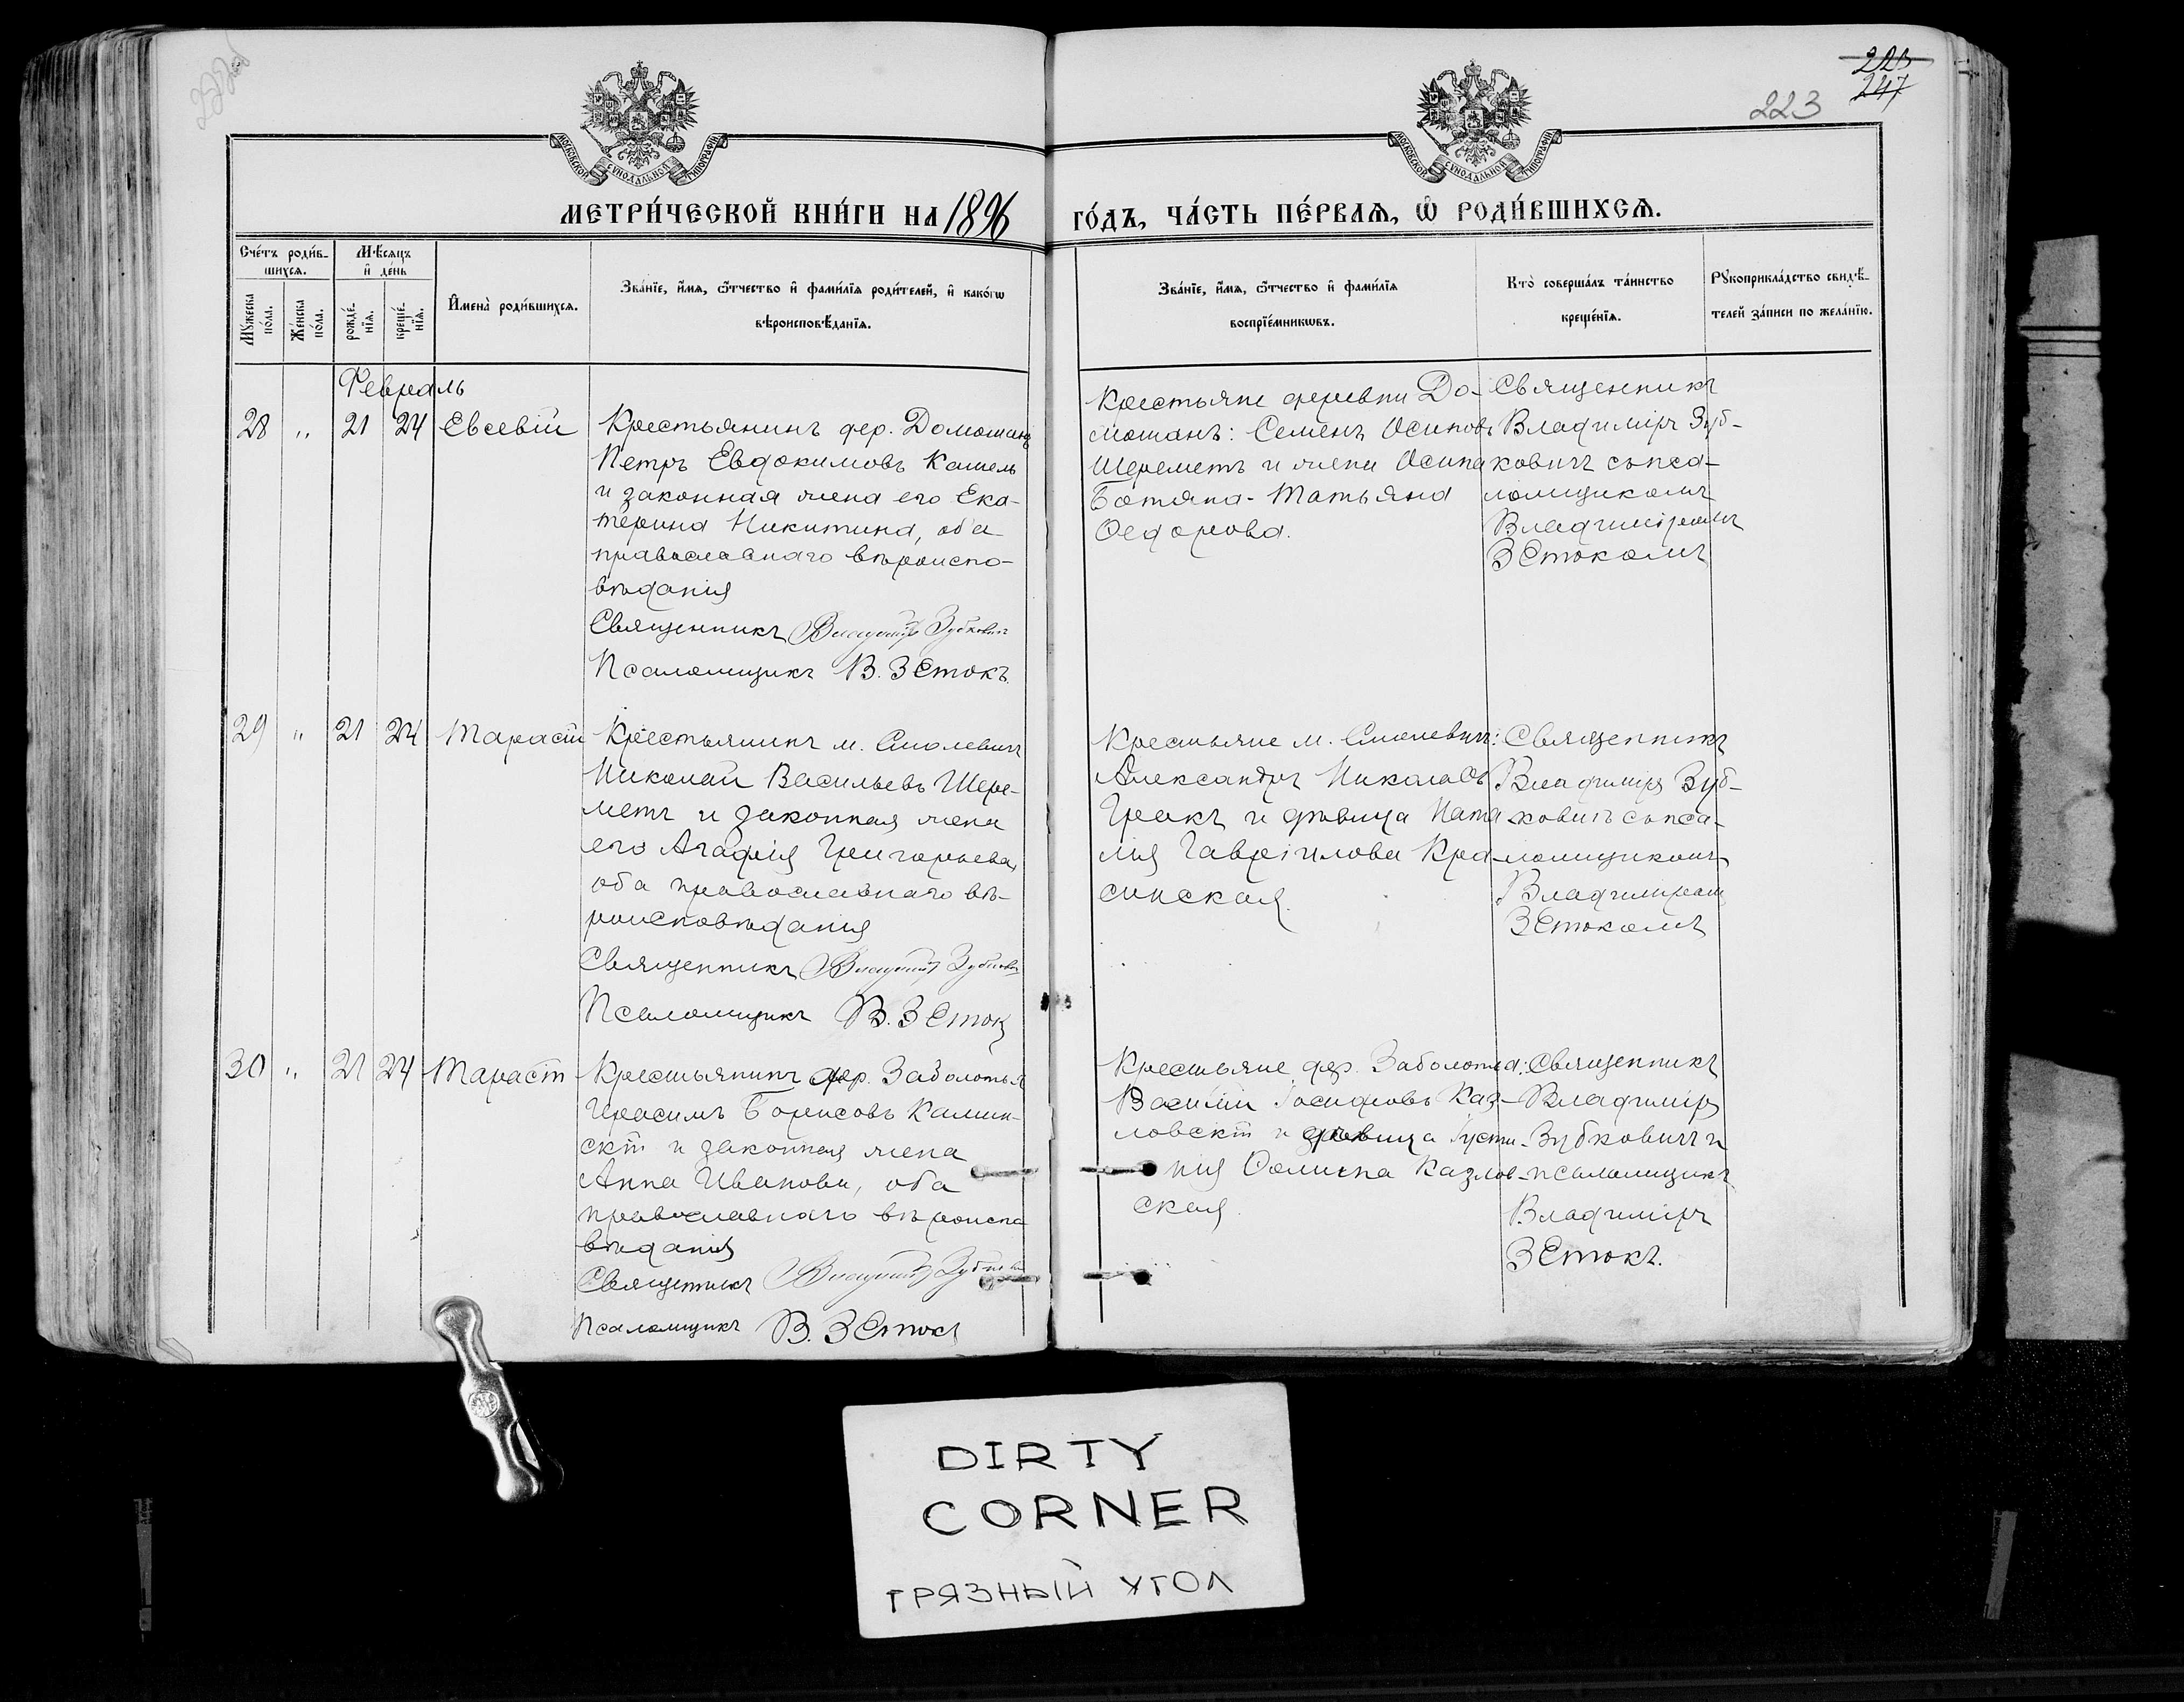 223
247
223
МОСКОВСКОЙ СУНОДАЛЬНОЙ ТИПОГРАФІИ
МОСКОВСКОЙ СУНОДАЛЬНОЙ ТИПОГРАФІИ
МЕТРИ́ЧЕСКОЙ КНИ́ГИ НА 1896 ГО́ДЪ, ЧА́СТЬ ПЕ́РВАЯ, Ѿ РОДИ́ВШИХСЯ.
Сче́тъ роди́в-
шихся.
Мѣсяцъ
и де́нь
Мꙋжеска
по́ла.
Же́нска
по́ла.
рожде́-
нїя.
креще́-
нїя.
Имена̀ роди́вшихся.
Зва́нїе, и́мя, ѻ́тчество и фами́лїя роди́телей, и како́гѡ
вѣроисповѣданїя.
Зва́нїе, и́мя, ѻ́тчество и фами́лїя
воспрїе́мникѡвъ.
Кто̀ соверша́лъ та́инство
креще́нїя.
Рꙋкоприкла́дство свидѣ́-
телей за́писи по жела́нїю.
Февраль
28 " 21 24 Евсевій
Крестьянинъ дер. Домошанъ
Петръ Евдокимовъ Кашель
и законная жена его Ека-
терина Никитина, оба
православнаго вѣроиспо-
вѣданія
Священникъ Владиміръ Зубковичъ
Псаломщикъ В. Зѣтокъ.
Крестьяне деревни До-
мошанъ: Семенъ Осиповъ
Шереметъ и жена Осипа
Ботяна - Татьяна
Ѳедорова.
Священникъ
Владиміръ Зуб-
ковичъ съ пса-
ломщикомъ
Владиміромъ
Зѣтокомъ
29 " 21 24 Тарасій
Крестьянинъ м. Смолевичъ
Николай Васильевъ Шере-
метъ и законная жена
его Агафія Григорьева,
оба православнаго вѣ-
роисповѣданія
Священникъ Владиміръ Зубковичъ
Псаломщикъ В. Зѣтокъ
Крестьяне м. Смолевичъ:
Александръ Николаевъ
Грекъ и дѣвица Ната
лія Гавріилова Кра-
синская.
Священникъ
Владиміръ Зуб-
ковичъ съ пса-
ломщикомъ
Владиміромъ
Зѣтокомъ
30 " 21 24 Тарасій
Крестьянинъ дер. Заболотья
Герасимъ Борисовъ Камин-
скій и законная жена
Анна Иванова, оба
православнаго вѣроиспо
вѣданія
Священникъ Владиміръ Зубковичъ
Псаломщикъ В. Зѣтокъ
Крестьяне дер. Заболотья:
Василій Іосифовъ Каз-
ловскій и дѣвица Іусти-
нія Ѳомина Казлов-
ская.
Священникъ
Владиміръ
Зубковичъ и
псаломщикъ
Владиміръ
Зѣтокъ.
DIRTY
CORNER
ГРЯЗНЫЙ УГОЛ